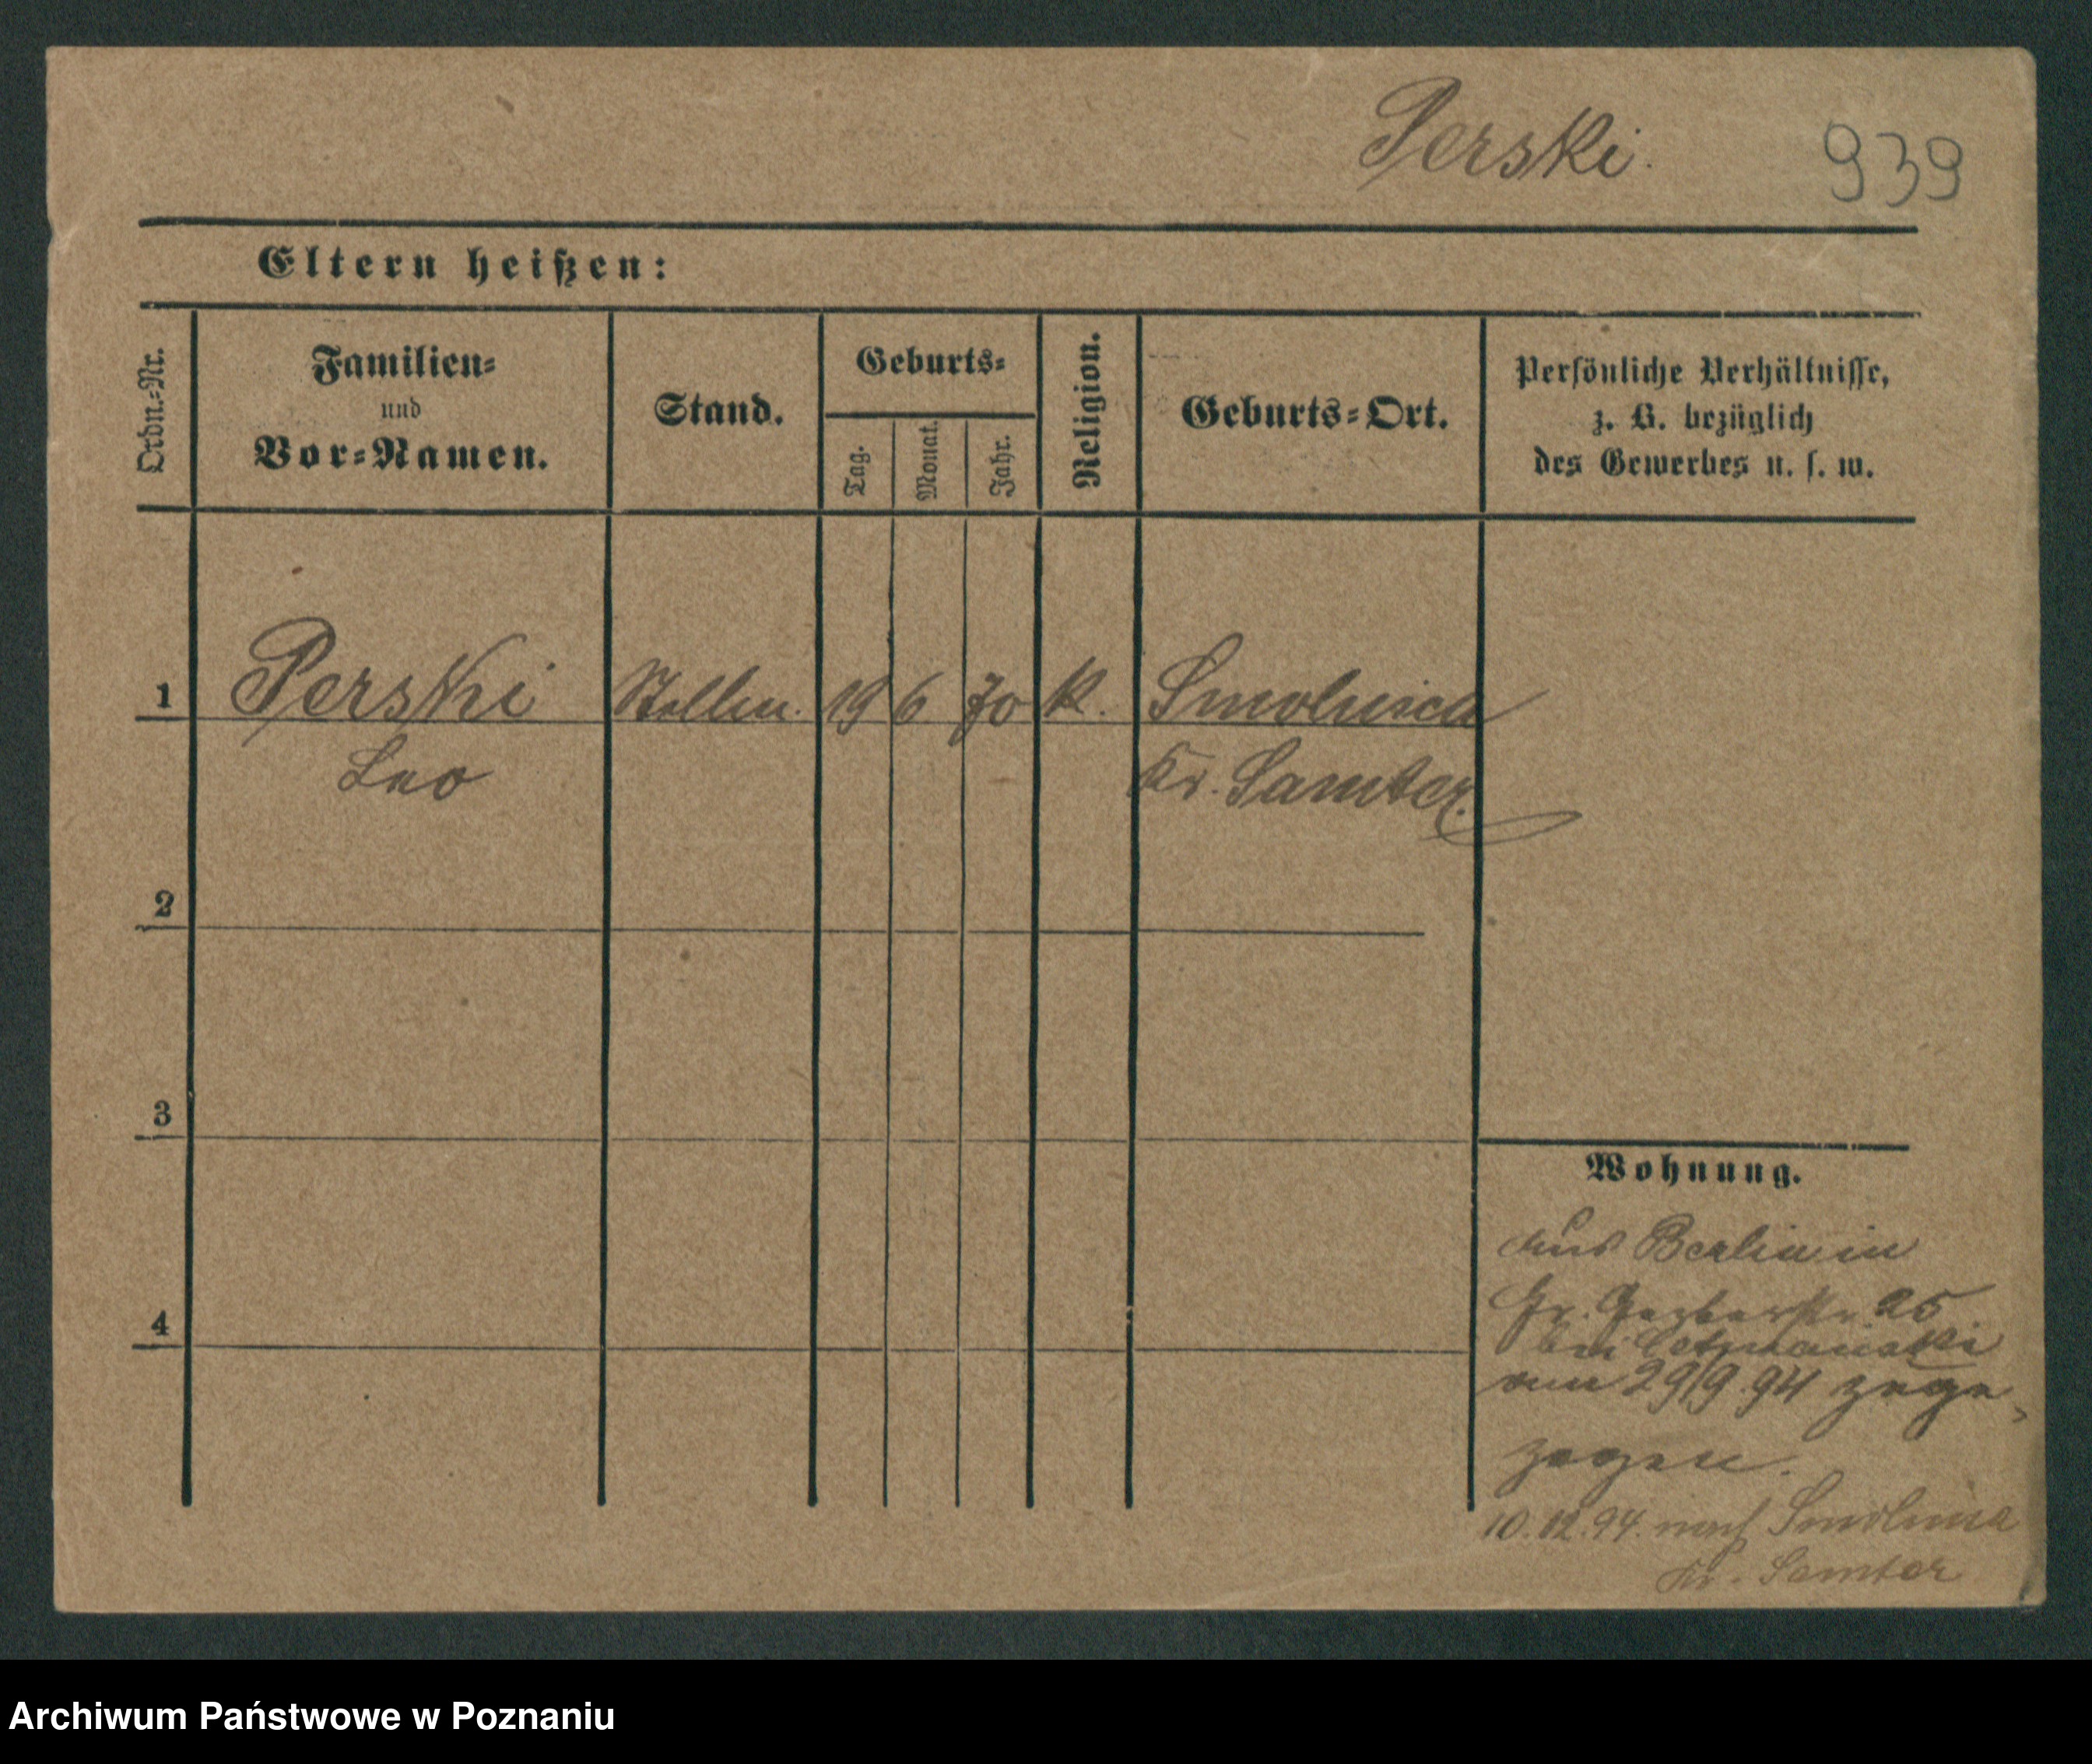 Perski.
939
Eltern heißen:
Ordn.-Nr.
Familien-
und
Vor-Namen.
Stand.
Geburts-
Tag.
Monat.
Jahr.
Religion.
Geburts-Ort.
Persönliche Verhältnisse,
z. B. bezüglich
des Gewerbes u. s. w.
1 Perski Stellm. 19 6 70 K. Smolnica
Leo Kr. Samter.
2
3
4
Wohnung.
aus Berlin in
Gr. Gerberstr. 25
bei
am 29/9 94 zuge-
zogen.
10.12.94. nach Smolnica
Kr. Samter
Archiwum Państwowe w Poznaniu